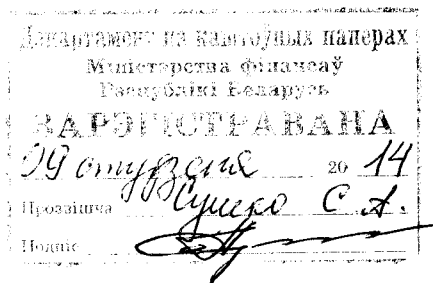 Дэпартамент па каштоўных паперах
Міністэрства фінансаў
Рэспублікі Беларусь
ЗАРЭГІСТРАВАНА
09 студзеня 2014
Прозвішча Сушко С.А.
Подпіс